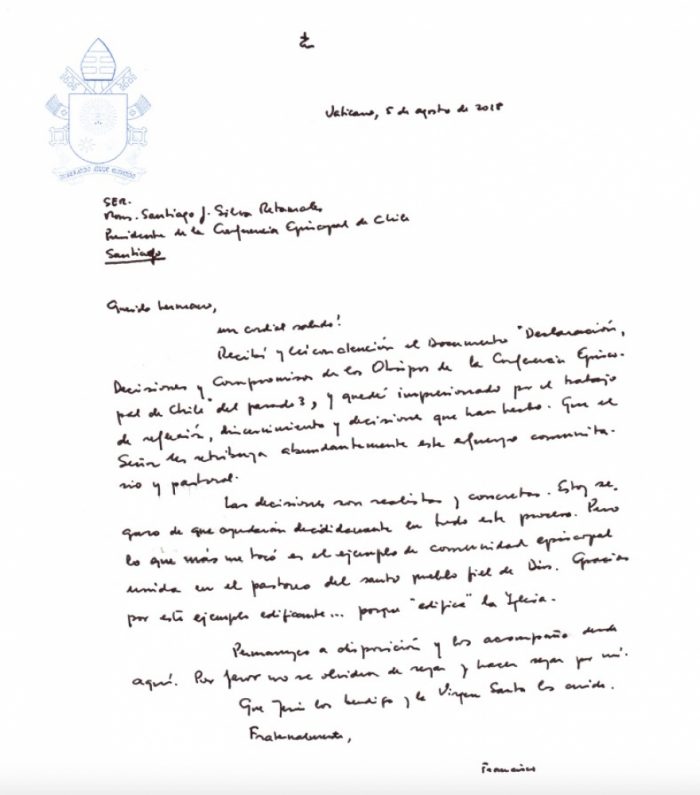 MISERANDO ATQUE ELIGENDO
Vaticano, 5 de agosto de 2018
SER.
Mons. Santiago J. Silva Retamales
Presidente de la Conferencia Episcopal de Chile
Santiago
Querido hermano,
un cordial saludo!
Recibí y leí con atención el Documento "Declaración,
Decisiones y Compromisos de los Obispos de la Conferencia Episco-
pal de Chile" del pasado 3, y quedé impresionado por el trabajo
de reflexión, discernimiento y decisiones que han hecho. Que el
Señor les retribuya abundantemente este esfuerzo comunita-
rio y pastoral.
Las decisiones son realistas y concretas. Estoy se-
guro de que ayudarán decididamente en todo este proceso. Pero
lo que más me tocó es el ejemplo de comunidad episcopal
unida en el pastoreo del santo pueblo fiel de Dios. Gracias
por este ejemplo edificante... porque "edifica" la Iglesia.
Permanezco a disposición y los acompaño desde
aquí. Por favor no se olviden de rezar y hacer rezar por mí.
Que Jesús los bendiga y la Virgen Santa los cuide.
Fraternalmente,
Francisco